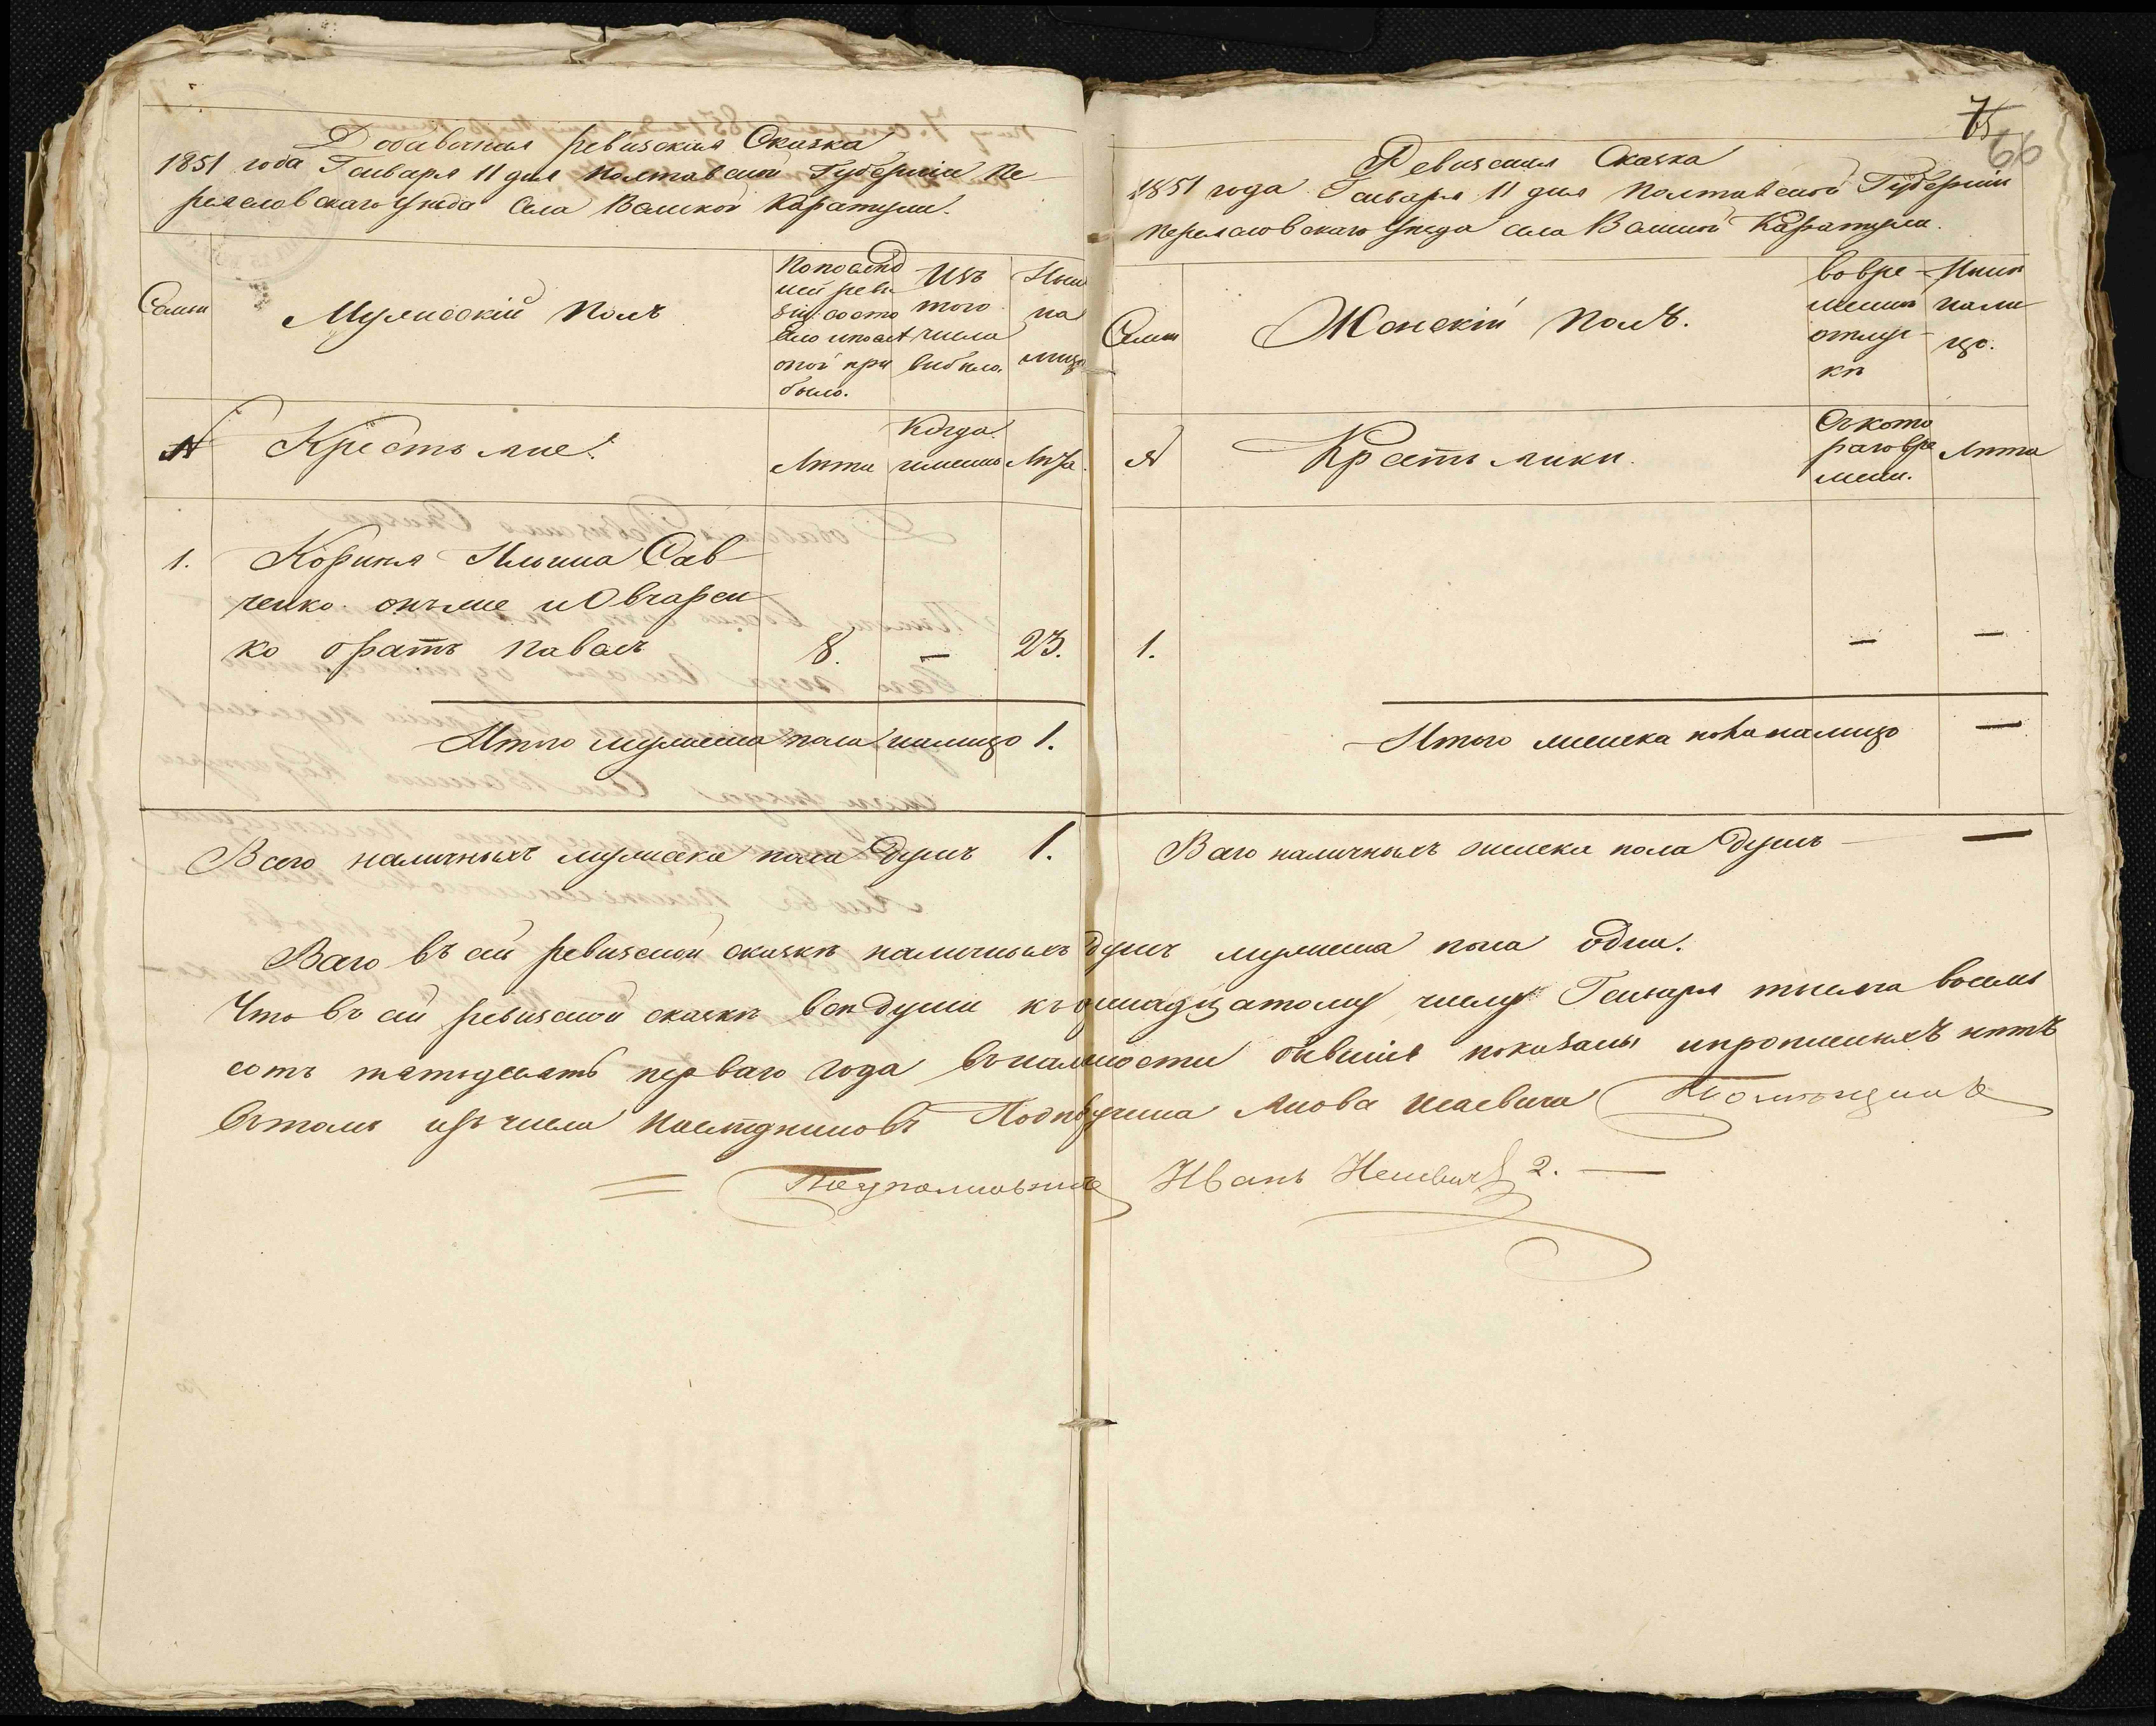 Добавочная ревизская Сказка
1851 года Генваря 11 дня Полтавской Губернии Пе-
реяславскаго уезда Села Великой Каратули.
Семьи
Мужеский Полъ
По послед
ней реви
зии состо
яло и после
оной при
было.
Изъ
того
числа
выбыло.
Ныне
на
лицо
№
Крестьяне.
Лета
Когда
именно
Лета.
1.
Корнил Ильина Сав
ченко онъ же и Овчарен
ко братъ Павелъ
8.
—
23.
Итого мужеска пола налицо 1.
Всего наличныхъ мужеска пола душъ 1.
75
66
Ревизская Сказка
1851 года Генваря 11 дня Полтавской Губернии
Переяславскаго уезда села Великой Каратули.
Семьи
Женский Полъ.
во вре-
менной
отлуч-
ке
Ныне
нали-
цо.
№
Крестьянки.
Съ кото
раго вре
мени.
Лета
1.
—
—
Итого женска пола налицо —
Всего наличныхъ женска пола душъ —
Всего въ сей ревизской сказке наличныхъ душъ мужеска пола одна.
Что въ сей ревизской сказке все души к одинадцатому числу Генваря тысяча восемь
сотъ пятьдесятъ перваго года въ наличности бывшие показаны и прописныхъ нетъ
въ томъ изъ числа Наследниковъ Подпоручика Якова Исаевича
Подполковникъ Иванъ 2. —